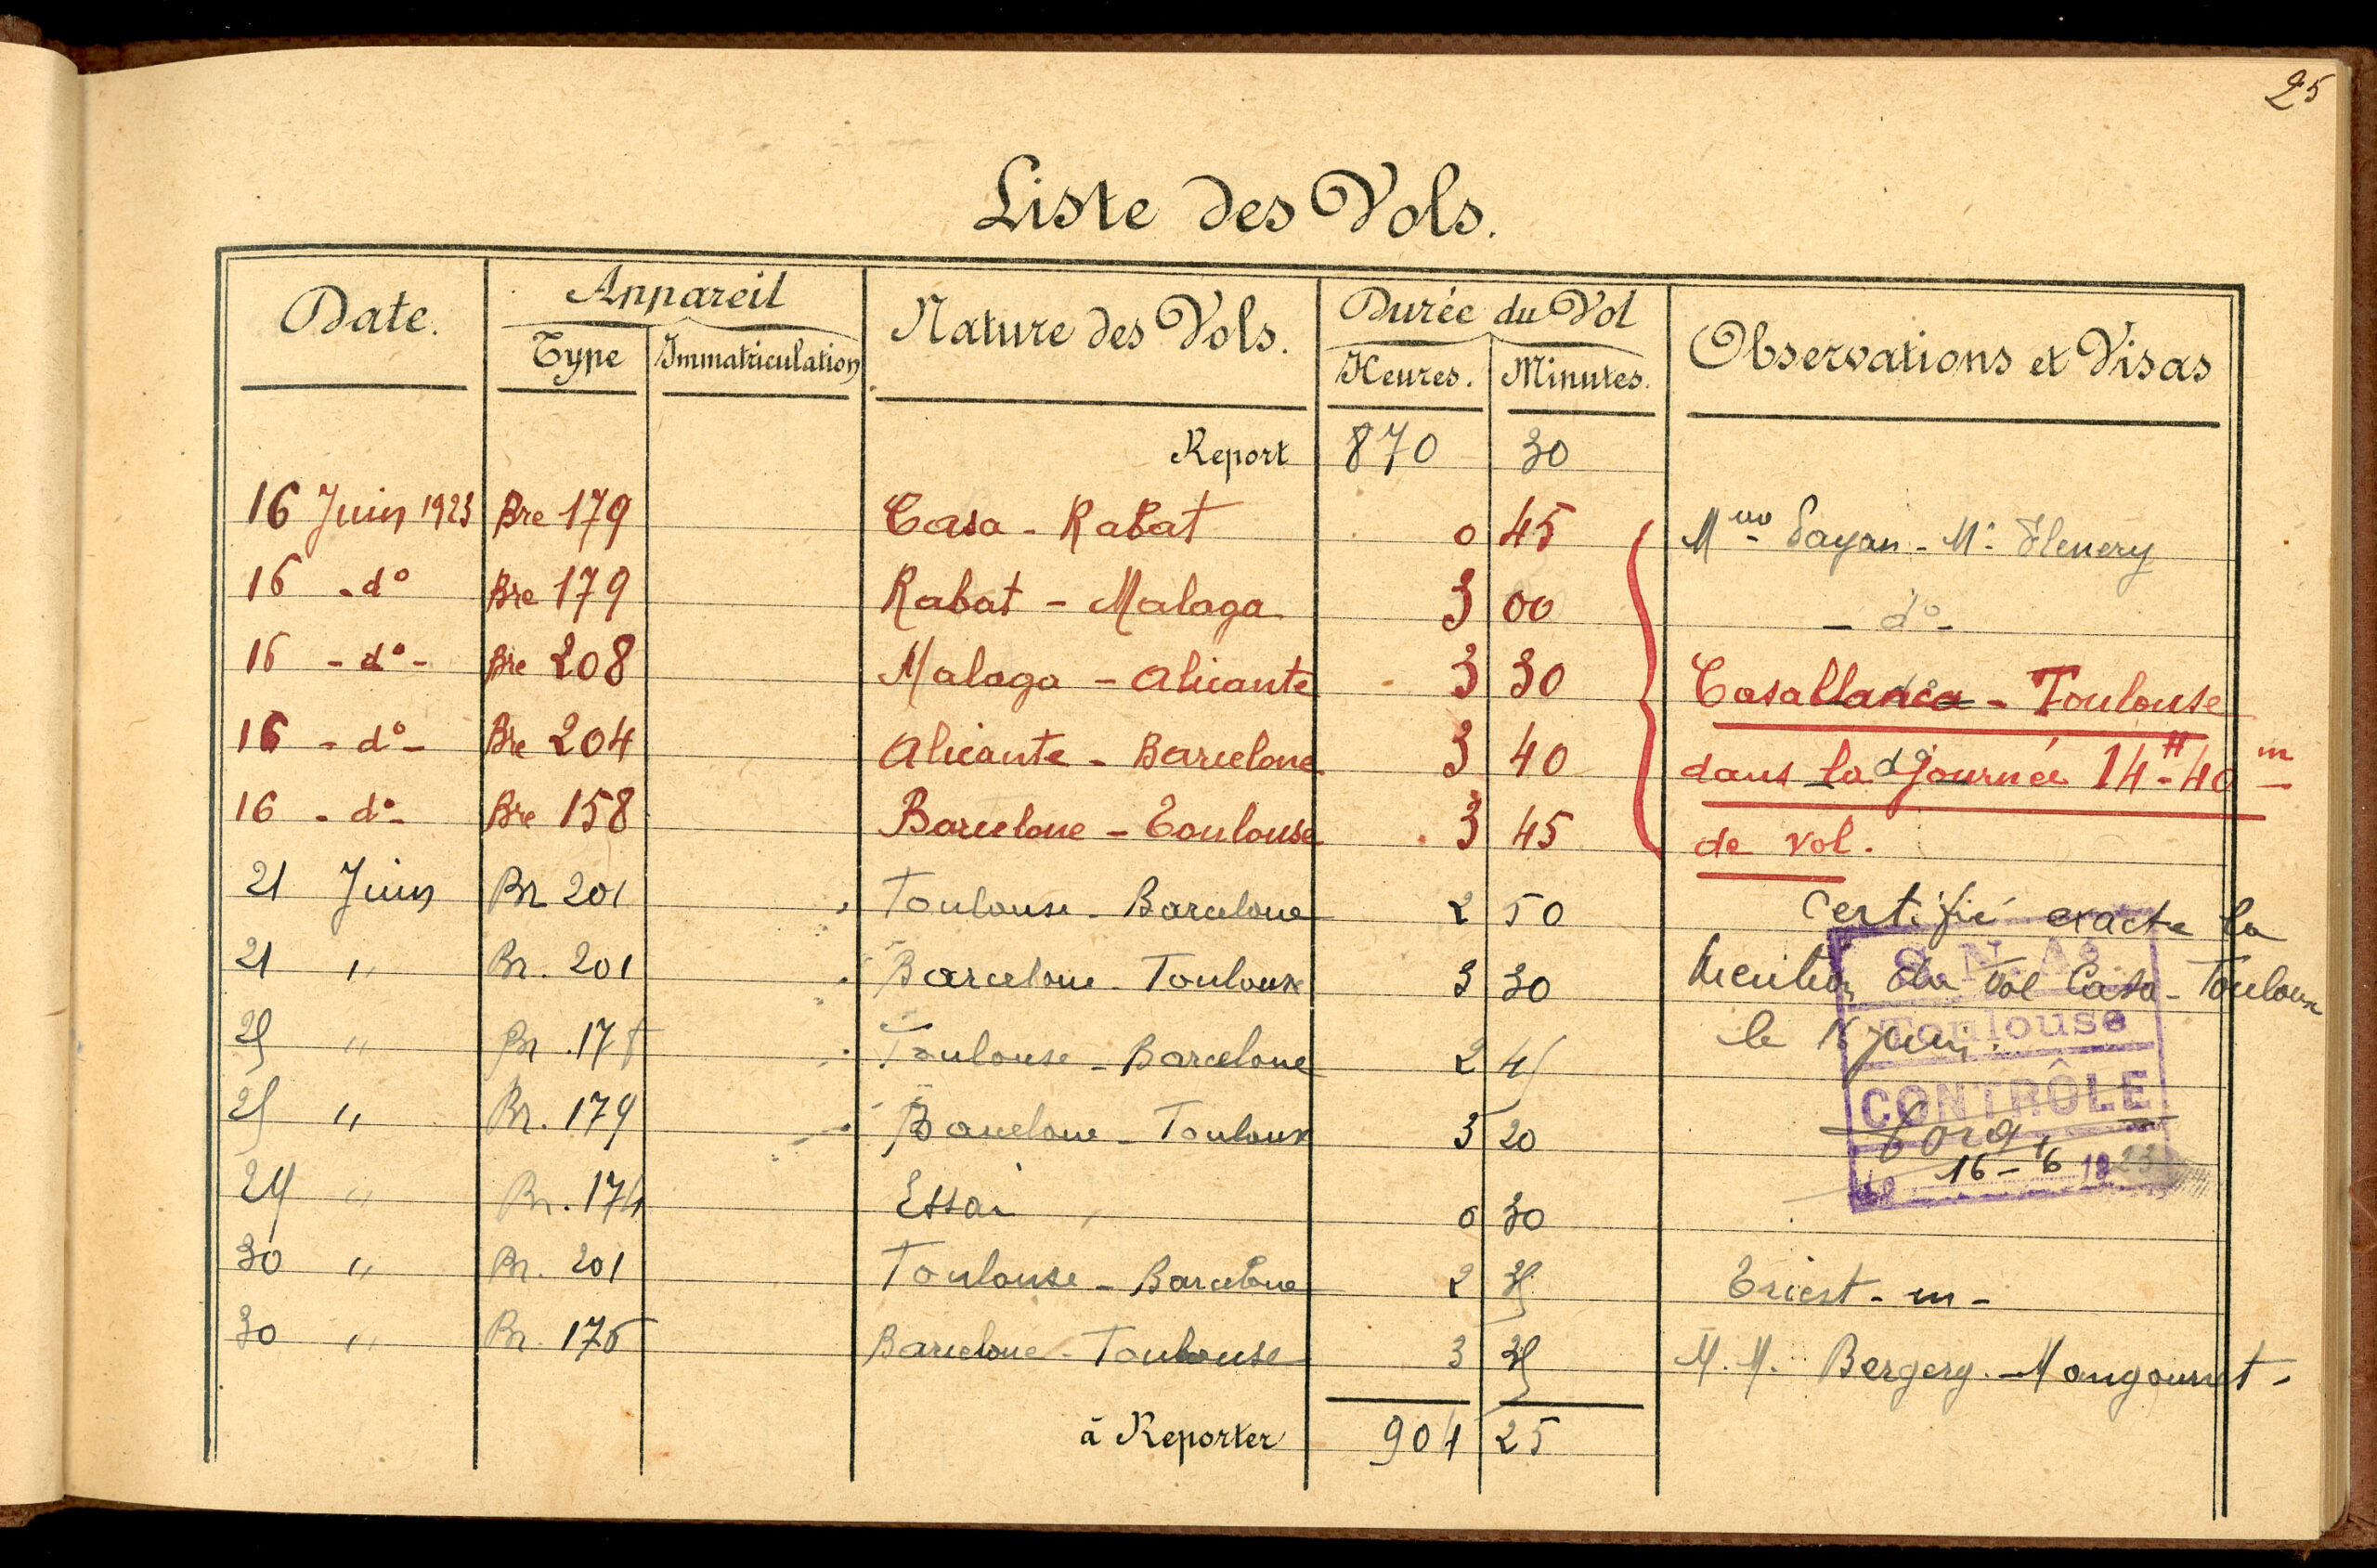 25
Liste des Vols.
Date. Appareil Nature des Vols. Durée du Vol Observations et Visas
Type Immatriculation Heures. Minutes.
Report 870 30
16 Juin 1923 Bre 179 Casa - Rabat 0 45 Payan - Mr
16 - d° Bre 179 Rabat - Malaga 3 00 - d° -
16 - d° - Bre 208 Malaga - Alicante 3 30 Casablanca - Toulouse
16 - d° - Bre 204 Alicante - Barcelone 3 40 dans la journée 14 H 40 m
16 - d° - Bre 158 Barcelone - Toulouse 3 45 de vol.
21 Juin Br 201 Toulouse - Barcelone 2 50 Certifié exacte la
21 " Br. 201 Barcelone - Toulouse 3 30 mention du vol Casa - Toulouse
25 " Br. 175 Toulouse - Barcelone 2 45 le 16 Juin.
25 " Br. 179 Barcelone - Toulouse 3 20
29 " Br. 174 Essai 0 30
30 " Br. 201 Toulouse - Barcelone 2 35 Triest - m -
30 " Br. 175 Barcelone - Toulouse 3 35 M.M. Bergerg. -
à Reporter 904 25
S. N. Aé
Toulouse
CONTRÔLE
le 16 - 6 1923